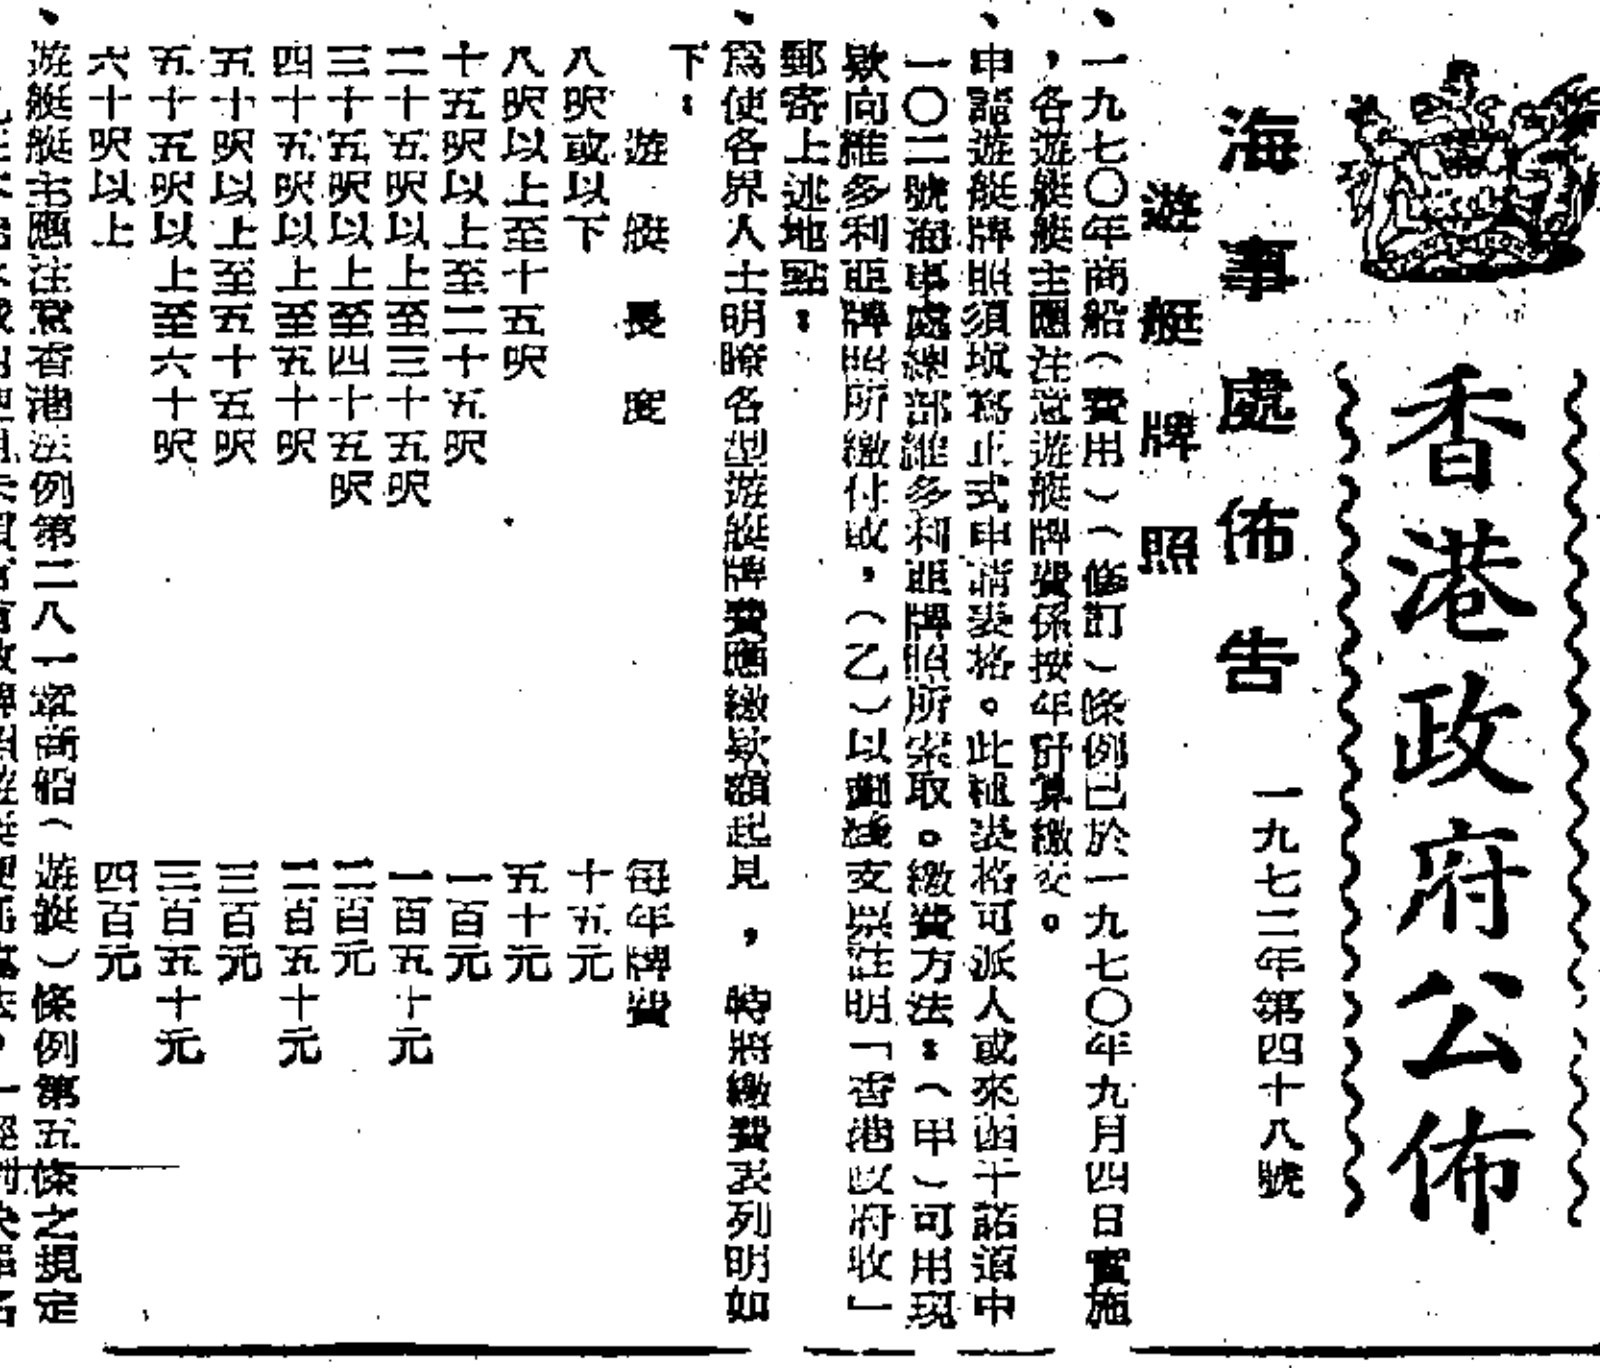 香港政府公佈
海事處佈告
一九七二年第四十八號
遊艇牌照
、一九七〇年商船（費用）（修訂）條例已於一九七〇年九月四日實施
，各遊艇艇主應注意遊艇牌費係按年計算繳交。
、申請遊艇牌照須填寫正式申請表格。此種表格可派人或來函干諾道中
一〇二號海事處總部維多利亞牌照所索取。繳費方法：（甲）可用現
欵向維多利亞牌照所繳付或，（乙）以劃綫支票註明「香港政府收」
郵寄上述地點：
、為使各界人士明瞭各型遊艇牌費應繳欵額起見，特將繳費表列明如
下：
遊艇長度 每年牌費
八呎或以下 十五元
八呎以上至十五呎 五十元
十五呎以上至二十五呎 一百元
二十五呎以上至三十五呎 一百五十元
三十五呎以上至四十五呎 二百元
四十五呎以上至五十呎 二百五十元
五十呎以上至五十五呎 三百元
五十五呎以上至六十呎 三百五十元
六十呎以上 四百元
、遊艇艇主應注意香港法例第二八一章商船（遊艇）條例第五條之規定